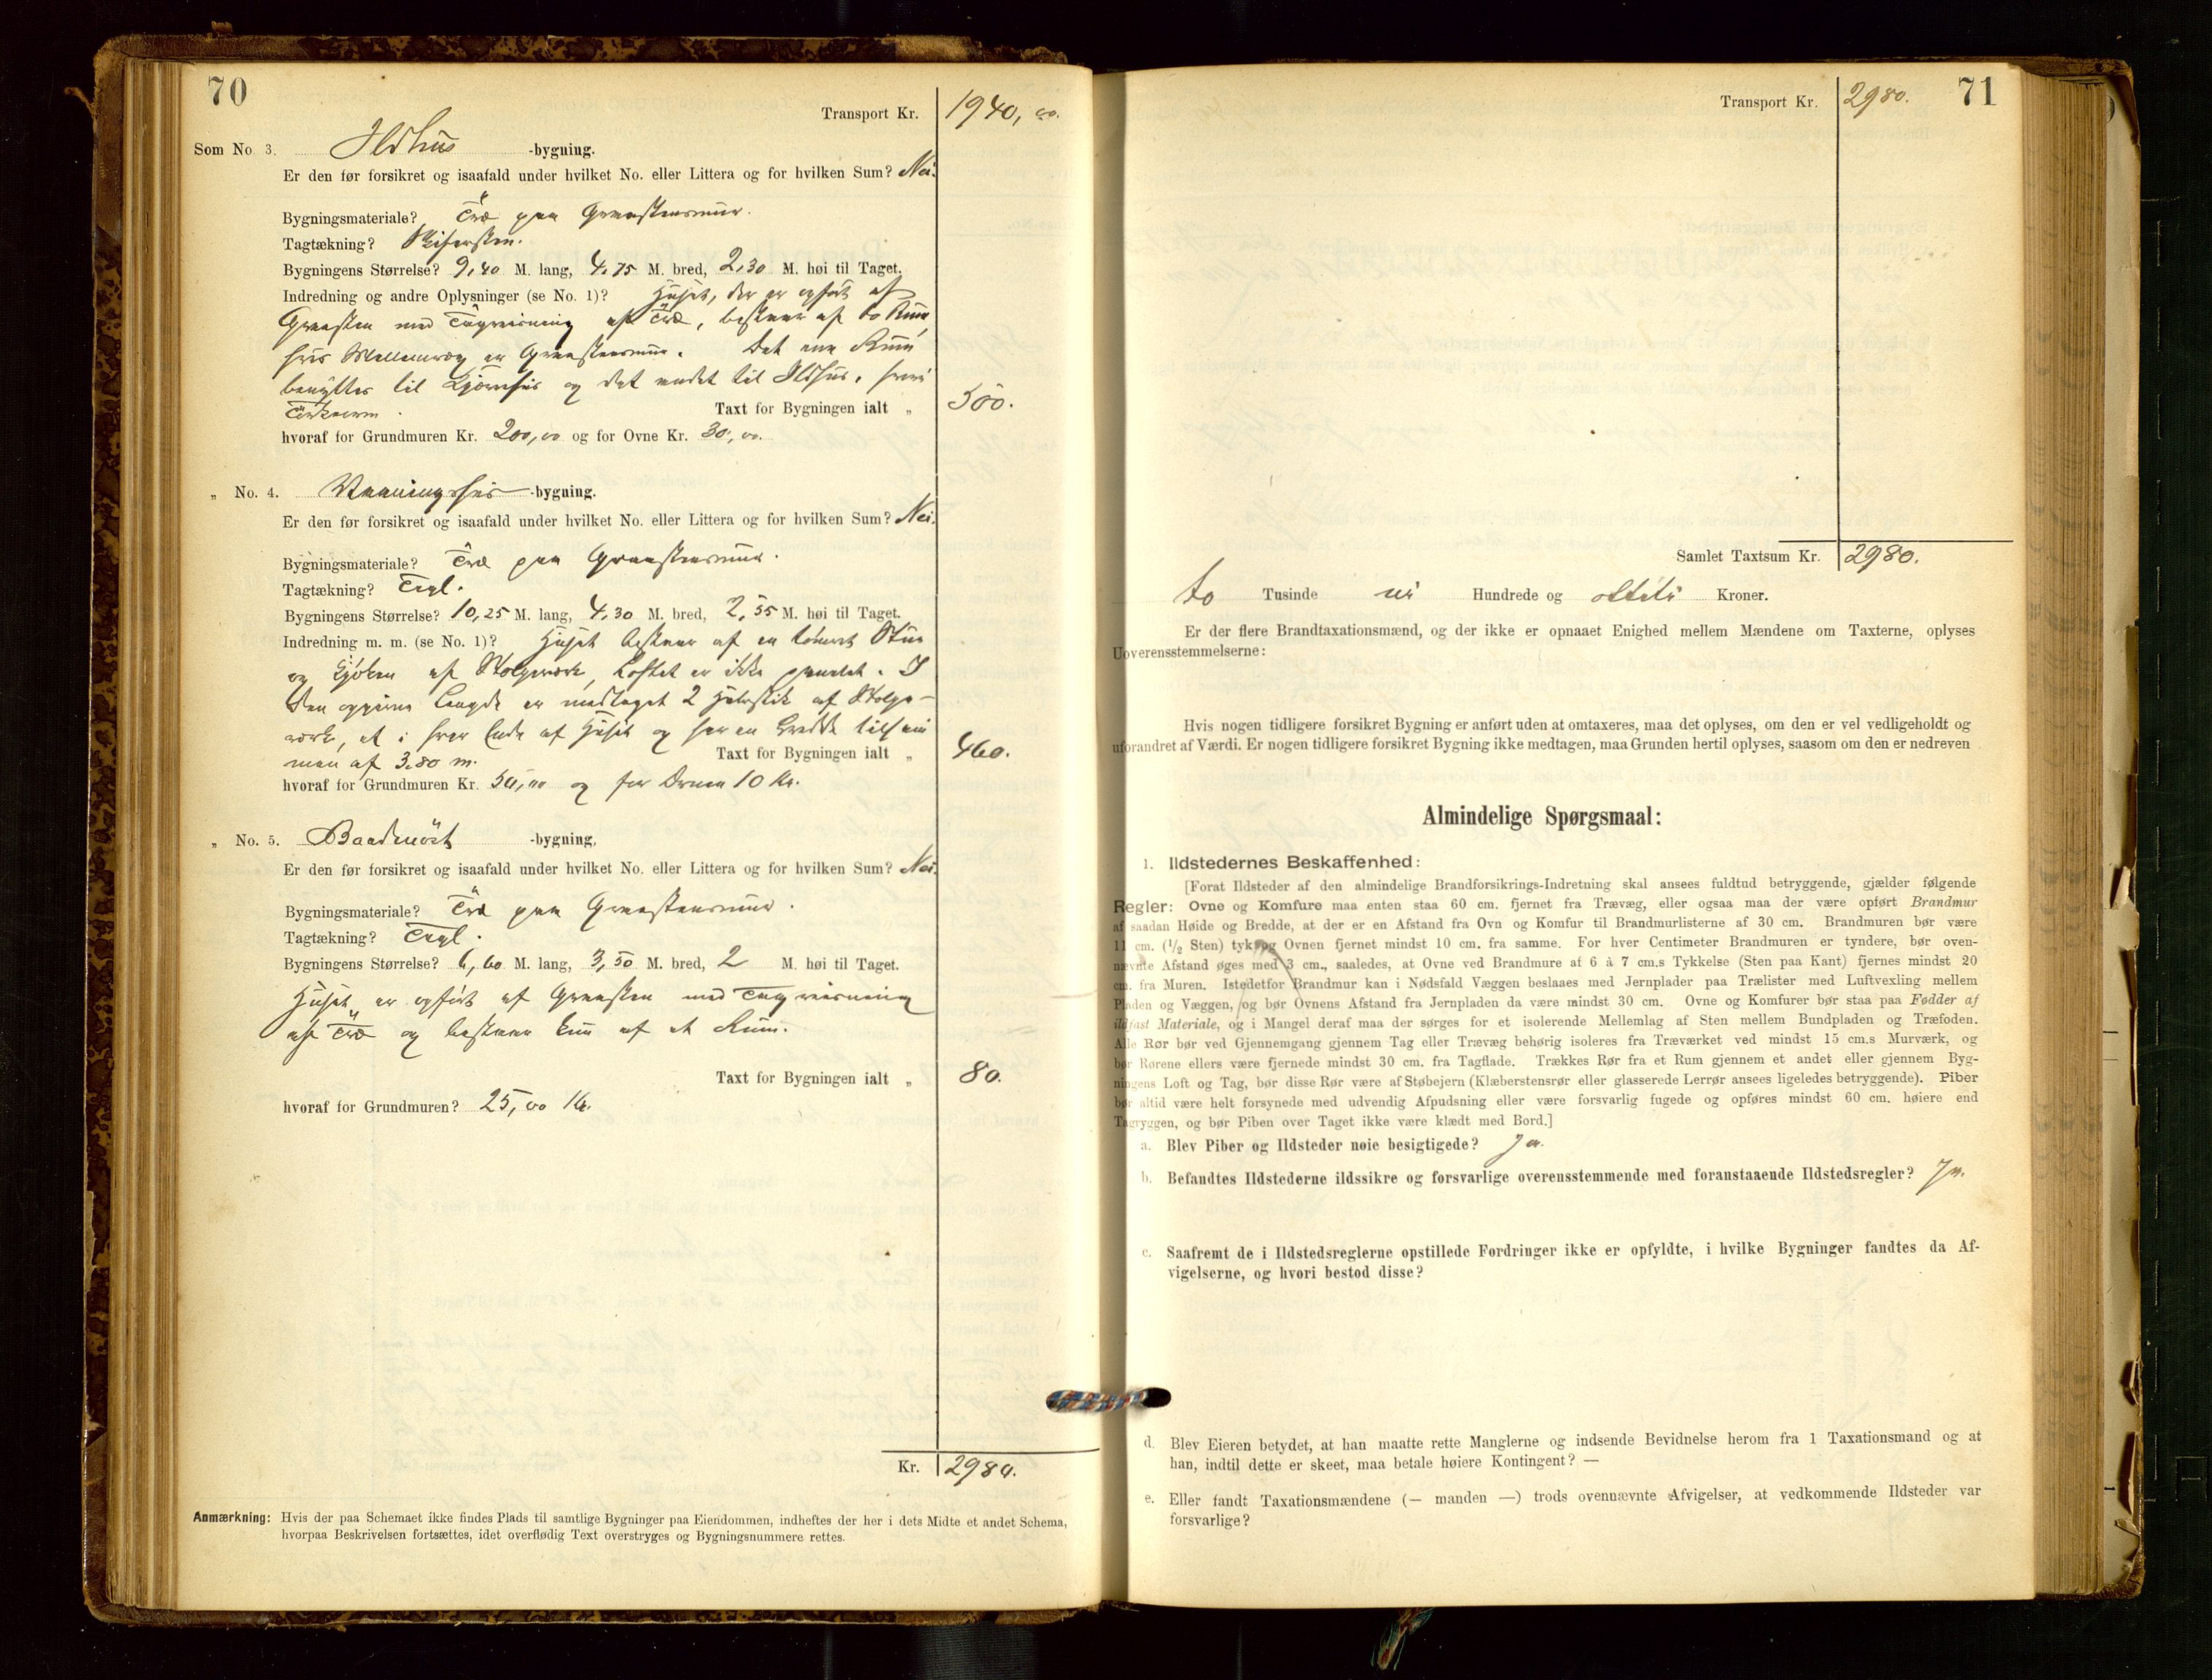 70
Transport Kr. 1940, 00.
Som No. 3. Ildhus -bygning.
Er den før forsikret og isaafald under hvilket No. eller Littera og for hvilken Sum? Nei.
Bygningsmateriale? Træ paa Graastensmur.
Tagtækning? Skifersten.
Bygningens Størrelse? 9,40 M. lang, 4,75 M. bred, 2,30 M. høi til Taget.
Indredning og andre Oplysninger (se No. 1)? Huset, der er opført af
Graasten med Tagreisning af Træ, bestaar af to Rum,
hvis Mellemvæg er Graastensmur. Det ene Rum
benyttes til Kjørnhus og det andet til Ildhus, hvori
Taxt for Bygningen ialt „ 500.
hvoraf for Grundmuren Kr. 200,00 og for Ovne Kr. 30,00.
„ No. 4. Vaaningshus -bygning.
Er den før forsikret og isaafald under hvilket No. eller Littera og for hvilken Sum? Nei.
Bygningsmateriale? Træ paa Graastensmur.
Tagtækning? Tegl.
Bygningens Størrelse? 10,25 M. lang, 4,30 M. bred, 2,55 M. høi til Taget.
Indredning m. m. (se No. 1)? Huset bestaar af en tømret Stue
og Kjøken af Stolpeværk, Loftet er ikke panelet. I
den opgivne Længde er medtaget 2 Halvstik af Stolpe-
værk, et i hver Ende af Huset og har en Bredde tilsam
men af 3,80 m. Taxt for Bygningen ialt „ 460.
hvoraf for Grundmuren Kr. 50,00 og for Ovnen 10 Kr.
„ No. 5. Baadnøst -bygning.
Er den før forsikret og isaafald under hvilket No. eller Littera og for hvilken Sum? Nei.
Bygningsmateriale? Træ paa Graastensmur.
Tagtækning? Tegl.
Bygningens Størrelse? 6,60 M. lang, 3,50 M. bred, 2 M. høi til Taget.
Huset er opført af Graasten med Tagreisning
af Træ og bestaar kun af et Rum.
Taxt for Bygningen ialt „ 80.
hvoraf for Grundmuren? 25,00 Kr.
Kr. 2980.
Anmærkning: Hvis der paa Schemaet ikke findes Plads til samtlige Bygninger paa Eiendommen, indheftes der her i dets Midte et andet Schema,
hvorpaa Beskrivelsen fortsættes, idet overflødig Text overstryges og Bygningsnummere rettes.
71
Transport Kr. 2980.
Samlet Taxtsum Kr. 2980.
to Tusinde ni Hundrede og otteti Kroner.
Er der flere Brandtaxationsmænd, og der ikke er opnaaet Enighed mellem Mændene om Taxterne, oplyses
Uoverensstemmelserne:
Hvis nogen tidligere forsikret Bygning er anført uden at omtaxeres, maa det oplyses, om den er vel vedligeholdt og
uforandret af Værdi. Er nogen tidligere forsikret Bygning ikke medtagen, maa Grunden hertil oplyses, saasom om den er nedreven
Almindelige Spørgsmaal:
1. Ildstedernes Beskaffenhed:
[Forat Ildsteder af den almindelige Brandforsikrings-Indretning skal ansees fuldtud betryggende, gjælder følgende
Regler: Ovne og Komfure maa enten staa 60 cm. fjernet fra Trævæg, eller ogsaa maa der være opført Brandmur
af saadan Høide og Bredde, at der er en Afstand fra Ovn og Komfur til Brandmurlisterne af 30 cm. Brandmuren bør være
11 cm. (1/2 Sten) tyk og Ovnen fjernet mindst 10 cm. fra samme. For hver Centimeter Brandmuren er tyndere, bør oven-
nævnte Afstand øges med 3 cm., saaledes, at Ovne ved Brandmure af 6 à 7 cm.s Tykkelse (Sten paa Kant) fjernes mindst 20
cm. fra Muren. Istedetfor Brandmur kan i Nødsfald Væggen beslaaes med Jernplader paa Trælister med Luftvexling mellem
Pladen og Væggen, og bør Ovnens Afstand fra Jernpladen da være mindst 30 cm. Ovne og Komfurer bør staa paa Fødder af
ildfast Materiale, og i Mangel deraf maa der sørges for et isolerende Mellemlag af Sten mellem Bundpladen og Træfoden.
Alle Rør bør ved Gjennemgang gjennem Tag eller Trævæg behørig isoleres fra Træværket ved mindst 15 cm.s Murværk, og
bør Rørene ellers være fjernede mindst 30 cm. fra Tagflade. Trækkes Rør fra et Rum gjennem et andet eller gjennem Byg-
ningens Loft og Tag, bør disse Rør være af Støbejern (Klæberstensrør eller glasserede Lerrør ansees ligeledes betryggende). Piber
bør altid være helt forsynede med udvendig Afpudsning eller være forsvarlig fugede og opføres mindst 60 cm. høiere end
Tagryggen, og bør Piben over Taget ikke være klædt med Bord.]
a. Blev Piber og Ildsteder nøie besigtigede? Ja.
b. Befandtes Ildstederne ildssikre og forsvarlige overensstemmende med foranstaaende Ildstedsregler? Ja.
c. Saafremt de i Ildstedsreglerne opstillede Fordringer ikke er opfyldte, i hvilke Bygninger fandtes da Af-
vigelserne, og hvori bestod disse?
d. Blev Eieren betydet, at han maatte rette Manglerne og indsende Bevidnelse herom fra 1 Taxationsmand og at
han, indtil dette er skeet, maa betale høiere Kontingent? —
e. Eller fandt Taxationsmændene (— manden —) trods ovennævnte Afvigelser, at vedkommende Ildsteder var
forsvarlige?